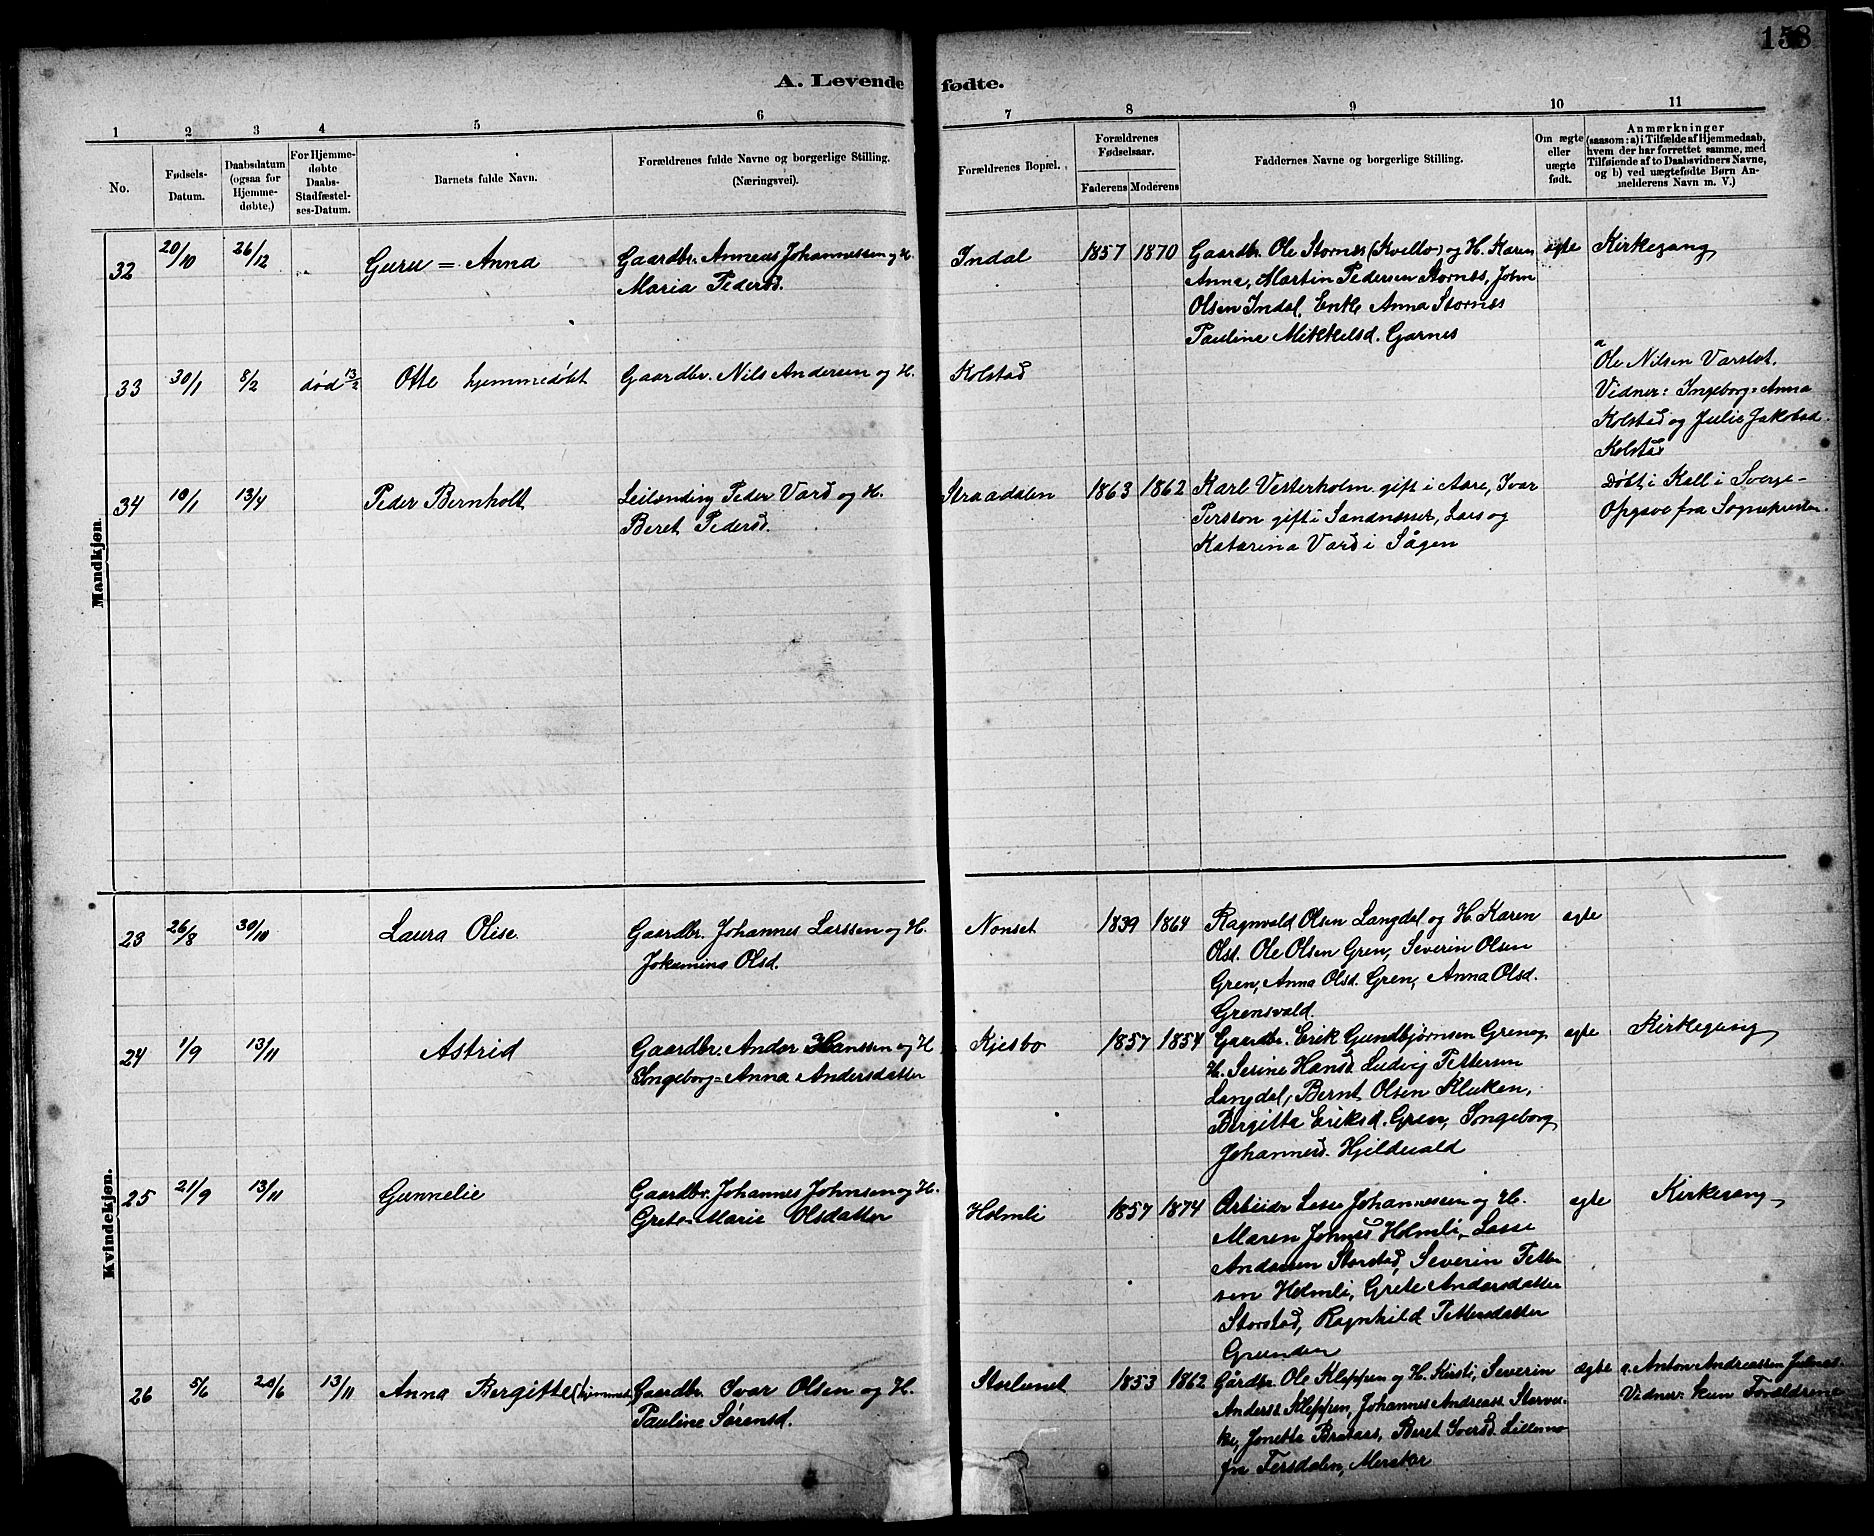 158
A. Levende fødte.
1 2 3 4 5 6 7 8 9 10 11
No.
Fødsels-
Datum.
Daabsdatum
(ogsaa for
Hjemme-
døbte,)
For Hjemme-
døbte
Daabs-
Stadfæstel-
ses-Datum.
Barnets fulde Navn.
Forældrenes fulde Navne og borgerlige Stilling.
(Næringsvei).
Forældrenes Bopæl.
Forældrenes
Fødselsaar.
Faderens Moderens
Faddernes Navne og borgerlige Stilling.
Om ægte
eller
uægte
født.
Anmærkninger
(saasom: a) i Tilfælde af Hjemmedaab,
hvem der har forrettet samme, med
Tilføiende af to Daabsvidners Navne,
og b) ved uægtefødte Børn An-
melderens Navn m. V.)
Mandkjøn.
32 20/10 26/12 Guru = Anna
Gaardbr. Anneus Johannessen og H.
Maria Pedersd.
Indal 1857 1870
Gaardbr. Ole Stornes (Kvello) og H. Karen
Anna, Martin Pedersen Stornes, John
Olsen Indal, Enke Anna Stornes
Paulina Mikkelsd. Garnes
ægte Kirkegang
33 30/1 8/2 død 13/2 Otte hjemmedøbt
Gaardbr. Nils Andersen og H.
Kolstad
a
Ole Nilsen Varslot.
Vidner: Ingeborg=Anna
Kolstad og Julie Jakobsd.
Kolstad
34 10/1 13/4 Peder Bernholt
Leilending Peder Vard og H.
Beret Pedersd.
Straadalen 1863 1862
Karl Vesterholm gift i Aare, Ivar
Persson gift i Sandnesset, Lars og
Katarina Vard i Sågen
Døbt i Kall i Sverge-
Opgave fra Sognepresten.
Kvindekjøn.
23 26/8 30/10 Laura Olise
Gaardbr. Johannes Larssen og H.
Jokumina Olsd.
Nonset 1839 1864
Ragnvald Olsen Langdal og H. Karen
Olsd. Ole Olsen Gren, Severin Olsen
Gren, Anna Olsd. Gren, Anna Olsd.
Grensvald.
ægte
24 1/9 13/11 Astrid
Gaardbr. Andor Hanssen og H
Ingeborg=Anna Andersdatter
Kjesbo 1857 1854
Gaardbr. Erik Gundbjørnsen Gren og
H. Serine Hansd. Ludvig Pettersen
Langdal, Bernt Olsen Kluken,
Birgitta Eriksd. Gren, Ingeborg
Johannesd. Hjeldevald
ægte Kirkegang
25 21/9 13/11 Gunnelie
Gaardbr. Johannes Johnsen og H.
Grete=Marie Olsdatter
Holmli 1857 1874
Arbeider Lasse Johannessen og H.
Maren Johnsd. Holmli, Lasse
Anderssen Storstad, Severin Petter-
sen Holmli, Grete Andersdatter
Storstad, Ragnhild Pettersdatter
Grunden
ægte Kirkegang
26 5/6 20/6 13/11 Anna Bergitte (hjemmed.)
Gaardbr. Ivar Olsen og H.
Pauline Sørensd.
Storlunet 1853 1862
Gårdbr. Ole Kleppen og H. Kirsti, Severin
Anderss. Kleppen, Johannes Andreass. Storves-
ke, Jonetta Brataas, Beret Iversd. Lillemo-
fra Færsdalen, Meraker
ægte a. Anton Andreassen Julnes.
Vidner: kun Forældrene